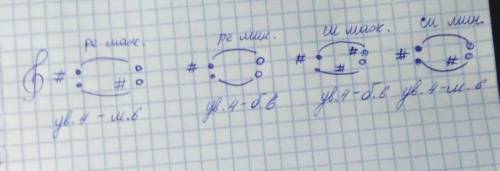 ре маж. ре мин. си маж. си мин.
ув.4-м.6 ув.4-б.6 ув.4-б.6 ув.4-м.6